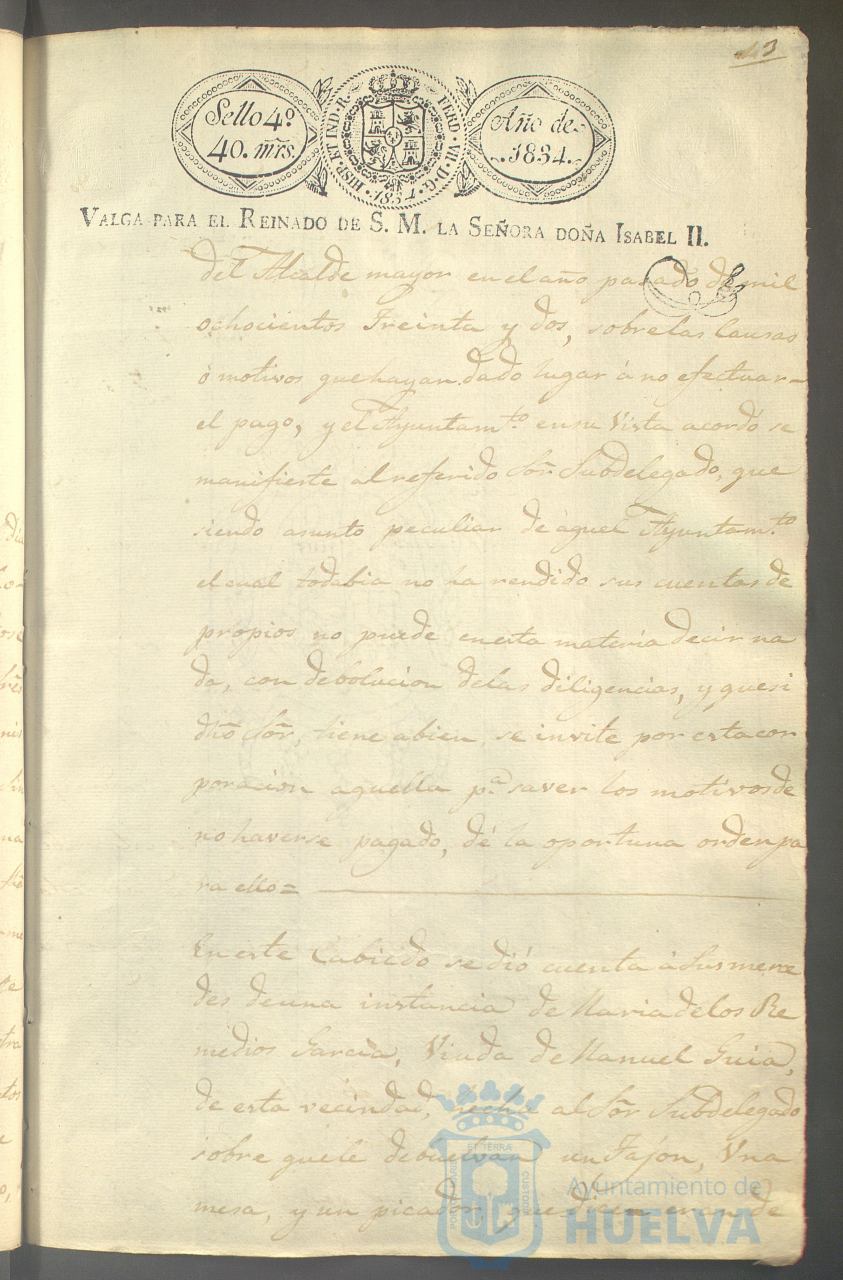 43
Sello 4º
40. mrs.
HISP. ET IND. R. FERD. VII. D. G. 1834.
Año de
1834.
VALGA PARA EL REINADO DE S. M. LA SEÑORA DOÑA ISABEL II.
del Alcalde mayor en el año pasado de mil
ochocientos Treinta y dos, sobre las Causas
ó motivos que hayan dado lugar á no efectuar
el pago, y el Ayuntamto. en su Vista acordó se
manifieste al referido Sor. Subdelegado, que
siendo asunto peculiar de aquel Ayuntamto.
el cual todabia no ha rendido sus cuentas de
propios no puede en esta materia decir na
da, con debolucion de las diligencias, y que si
dho Sor. tiene abien se invite por esta cor
poracion aquella pa. saver los motivos de
no haverse pagado, dé la oportuna orden pa
ra ello=
En este Cabildo se dió cuenta á Sus merce
des de una instancia de Maria de los Re
medios Garcia, Viuda de Manuel Guia,
de esta vecindad, hecha al Sor. Subdelegado
sobre que le debuelvan un Tajon, Una
mesa, y un picador, que dicen eran de
Ayuntamiento de
HUELVA